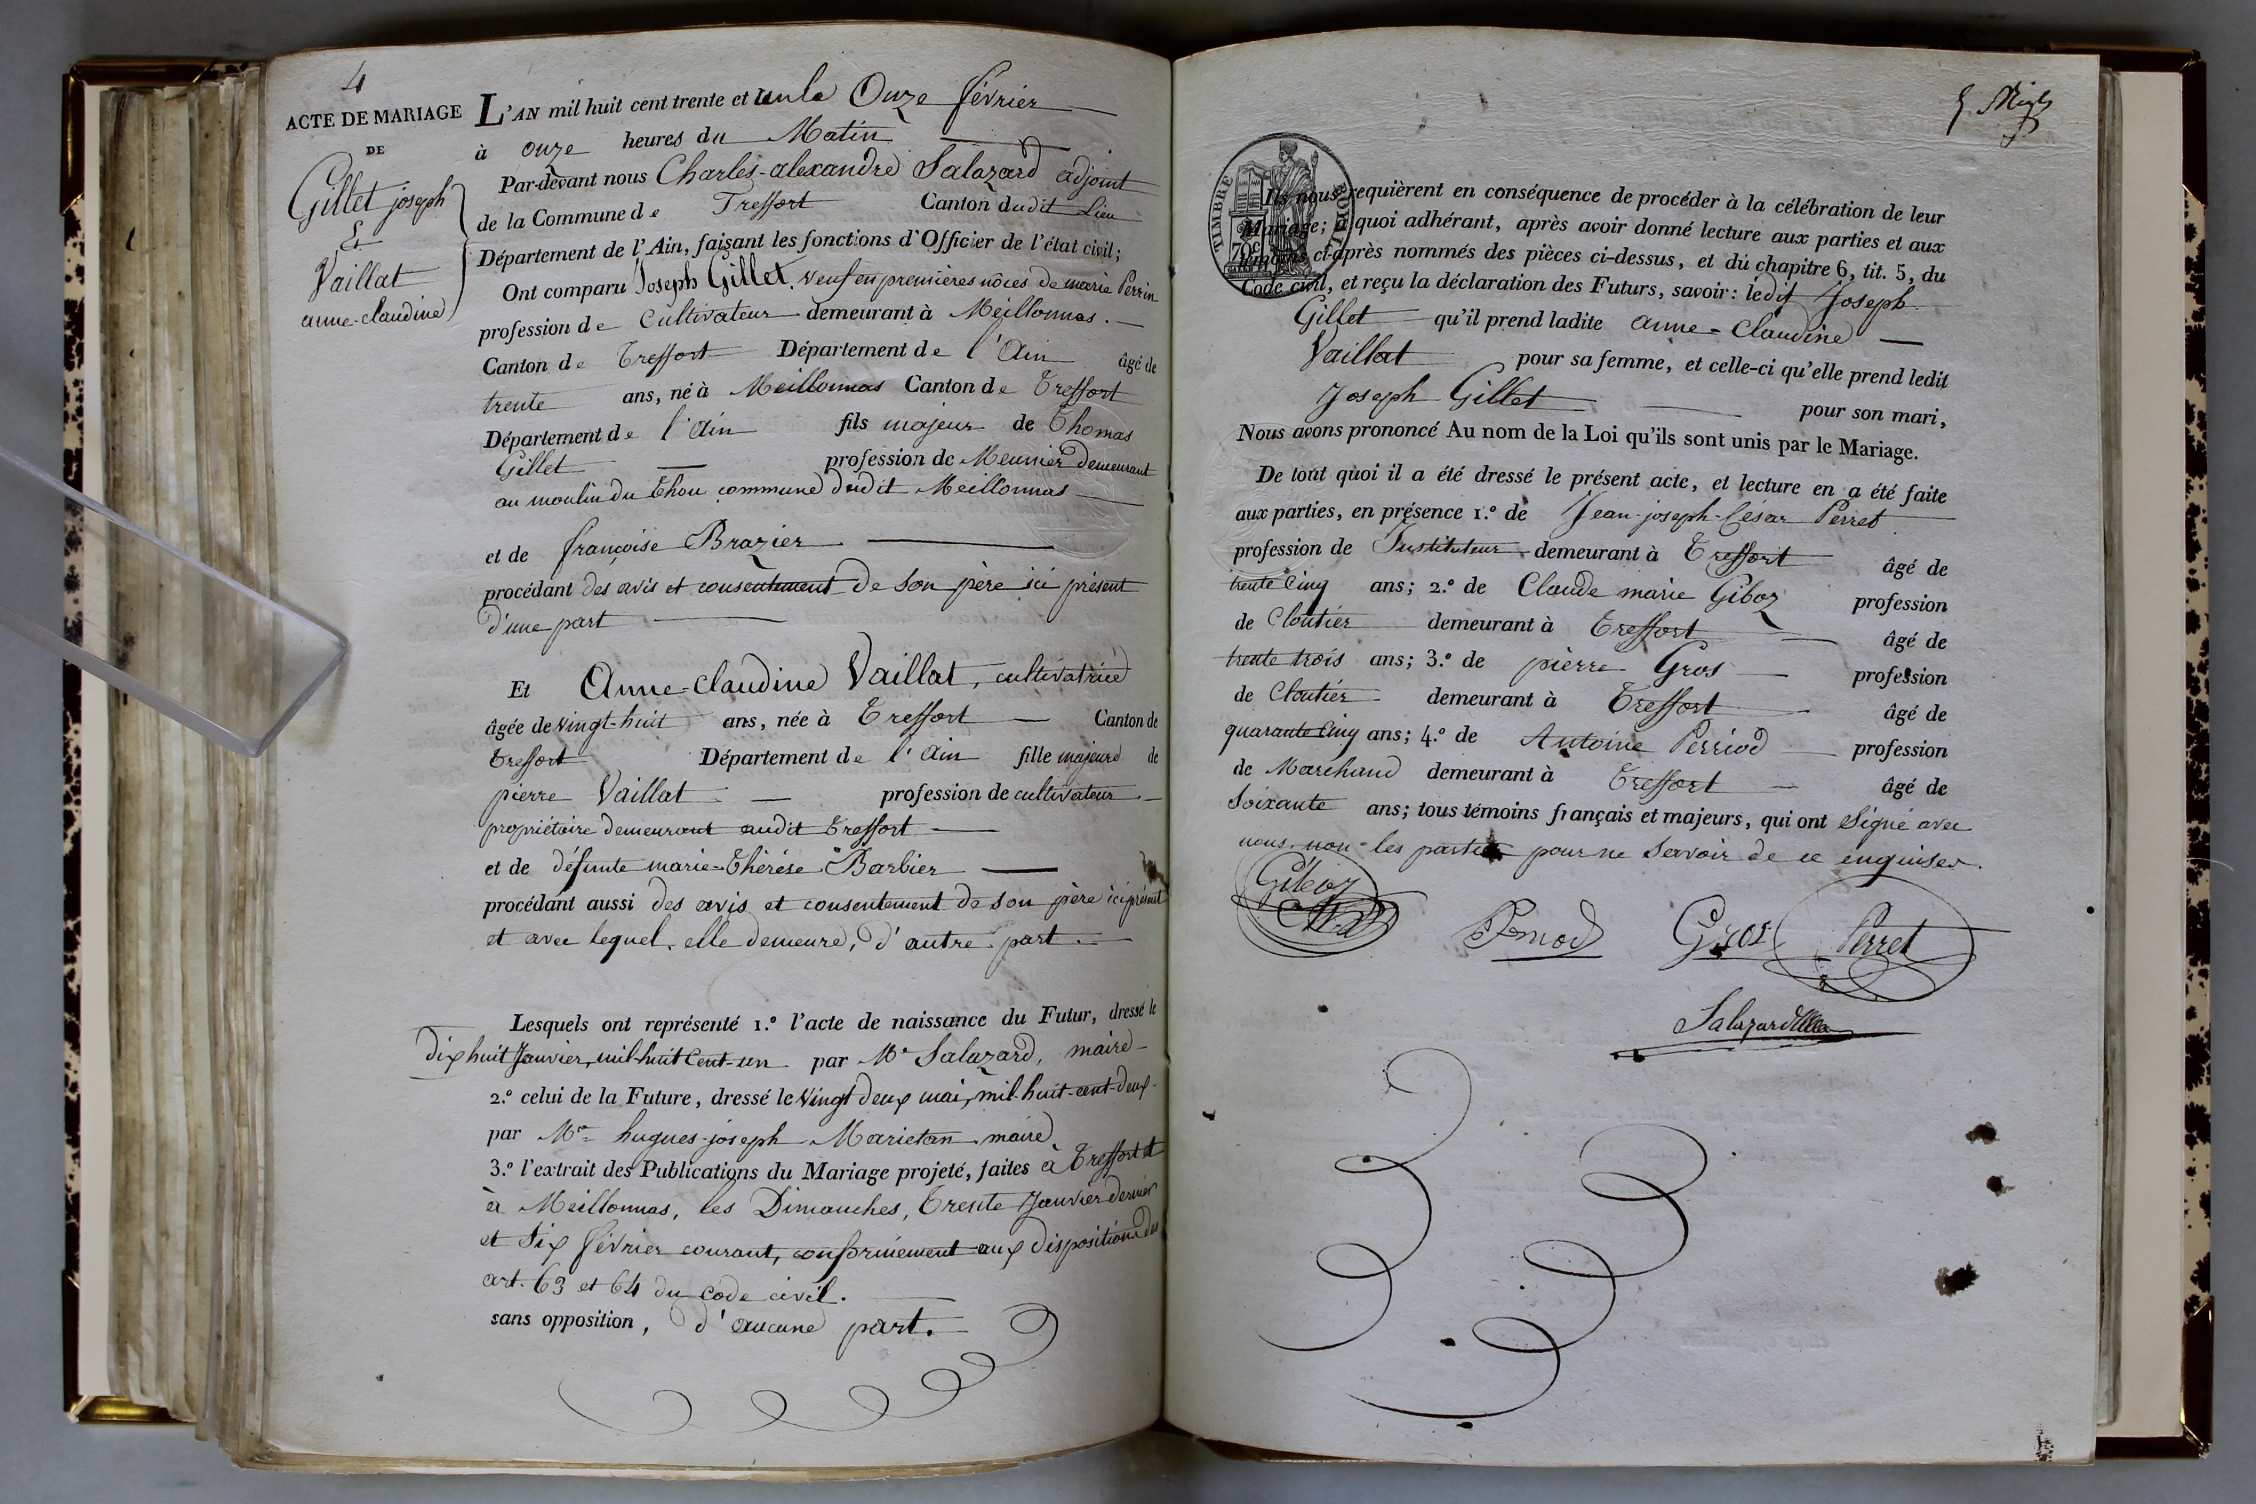 4
ACTE DE MARIAGE
DE
Gillet joseph
&
Vaillat
anne-claudine
L'AN mil huit cent trente et un le Onze février
à onze heures du Matin
Par-devant nous Charles-alexandre Salazard adjoint
de la Commune de Treffort Canton dudit Lieu
Département de l'Ain, faisant les fonctions d'Officier de l'état civil;
Ont comparu Joseph Gillet, veuf en premières nôces de marie Perrin
profession de Cultivateur demeurant à Meillonnas.
Canton de Treffort Département de l'Ain âgé de
trente ans, né à Meillonnas Canton de Treffort
Département de l'Ain fils majeur de Thomas
Gillet profession de Meunier demeurant
au moulin du Thou commune dudit Meillonnas
et de françoise Brazier
procédant des avis et consentement de son père ici présent
d'une part
Et Anne-claudine Vaillat, cultivatrice
âgée de vingt-huit ans, née à Treffort Canton de
Treffort Département de l'Ain fille majeure de
pierre Vaillat profession de cultivateur
propriétaire demeurant audit Treffort
et de défunte marie-Thérèse Barbier
procédant aussi des avis et consentement de son père ici présent
et avec lequel elle demeure, d'autre part.
Lesquels ont représenté 1.º l'acte de naissance du Futur, dressé le
dix huit Janvier, mil-huit Cent-un par Mr Salazard, maire
2.º celui de la Future, dressé le vingt deux mai, mil-huit-cent-deux
par Mre hugues-joseph Marietan maire
3.º l'extrait des Publications du Mariage projeté, faites à Treffort et
à Meillonnas, les Dimanches, Trente Janvier dernier
et Six février courant, conformément aux dispositions des
art. 63 et 64 du code civil.
sans opposition, d'aucune part.
TIMBRE ROYAL
70c
Ils nous requièrent en conséquence de procéder à la célébration de leur
Mariage; à quoi adhérant, après avoir donné lecture aux parties et aux
témoins ci-après nommés des pièces ci-dessus, et du chapitre 6, tit. 5, du
Code civil, et reçu la déclaration des Futurs, savoir: ledit Joseph
Gillet qu'il prend ladite anne-Claudine
Vaillat pour sa femme, et celle-ci qu'elle prend ledit
Joseph Gillet pour son mari,
Nous avons prononcé Au nom de la Loi qu'ils sont unis par le Mariage.
De tout quoi il a été dressé le présent acte, et lecture en a été faite
aux parties, en présence 1.º de Jean-joseph-Cesar Perret
profession de Instituteur demeurant à Treffort âgé de
trente Cinq ans; 2.º de Claude marie Giboz profession
de Cloutier demeurant à Treffort âgé de
trente trois ans; 3.º de pierre Gros profession
de Cloutier demeurant à Treffort âgé de
quarante Cinq ans; 4.º de Antoine Perriod profession
de Marchand demeurant à Treffort âgé de
Soixante ans; tous témoins français et majeurs, qui ont Signé avec
nous, non les parties pour ne savoir de ce enquises.
Giboz
Gros
Perret
Salazard